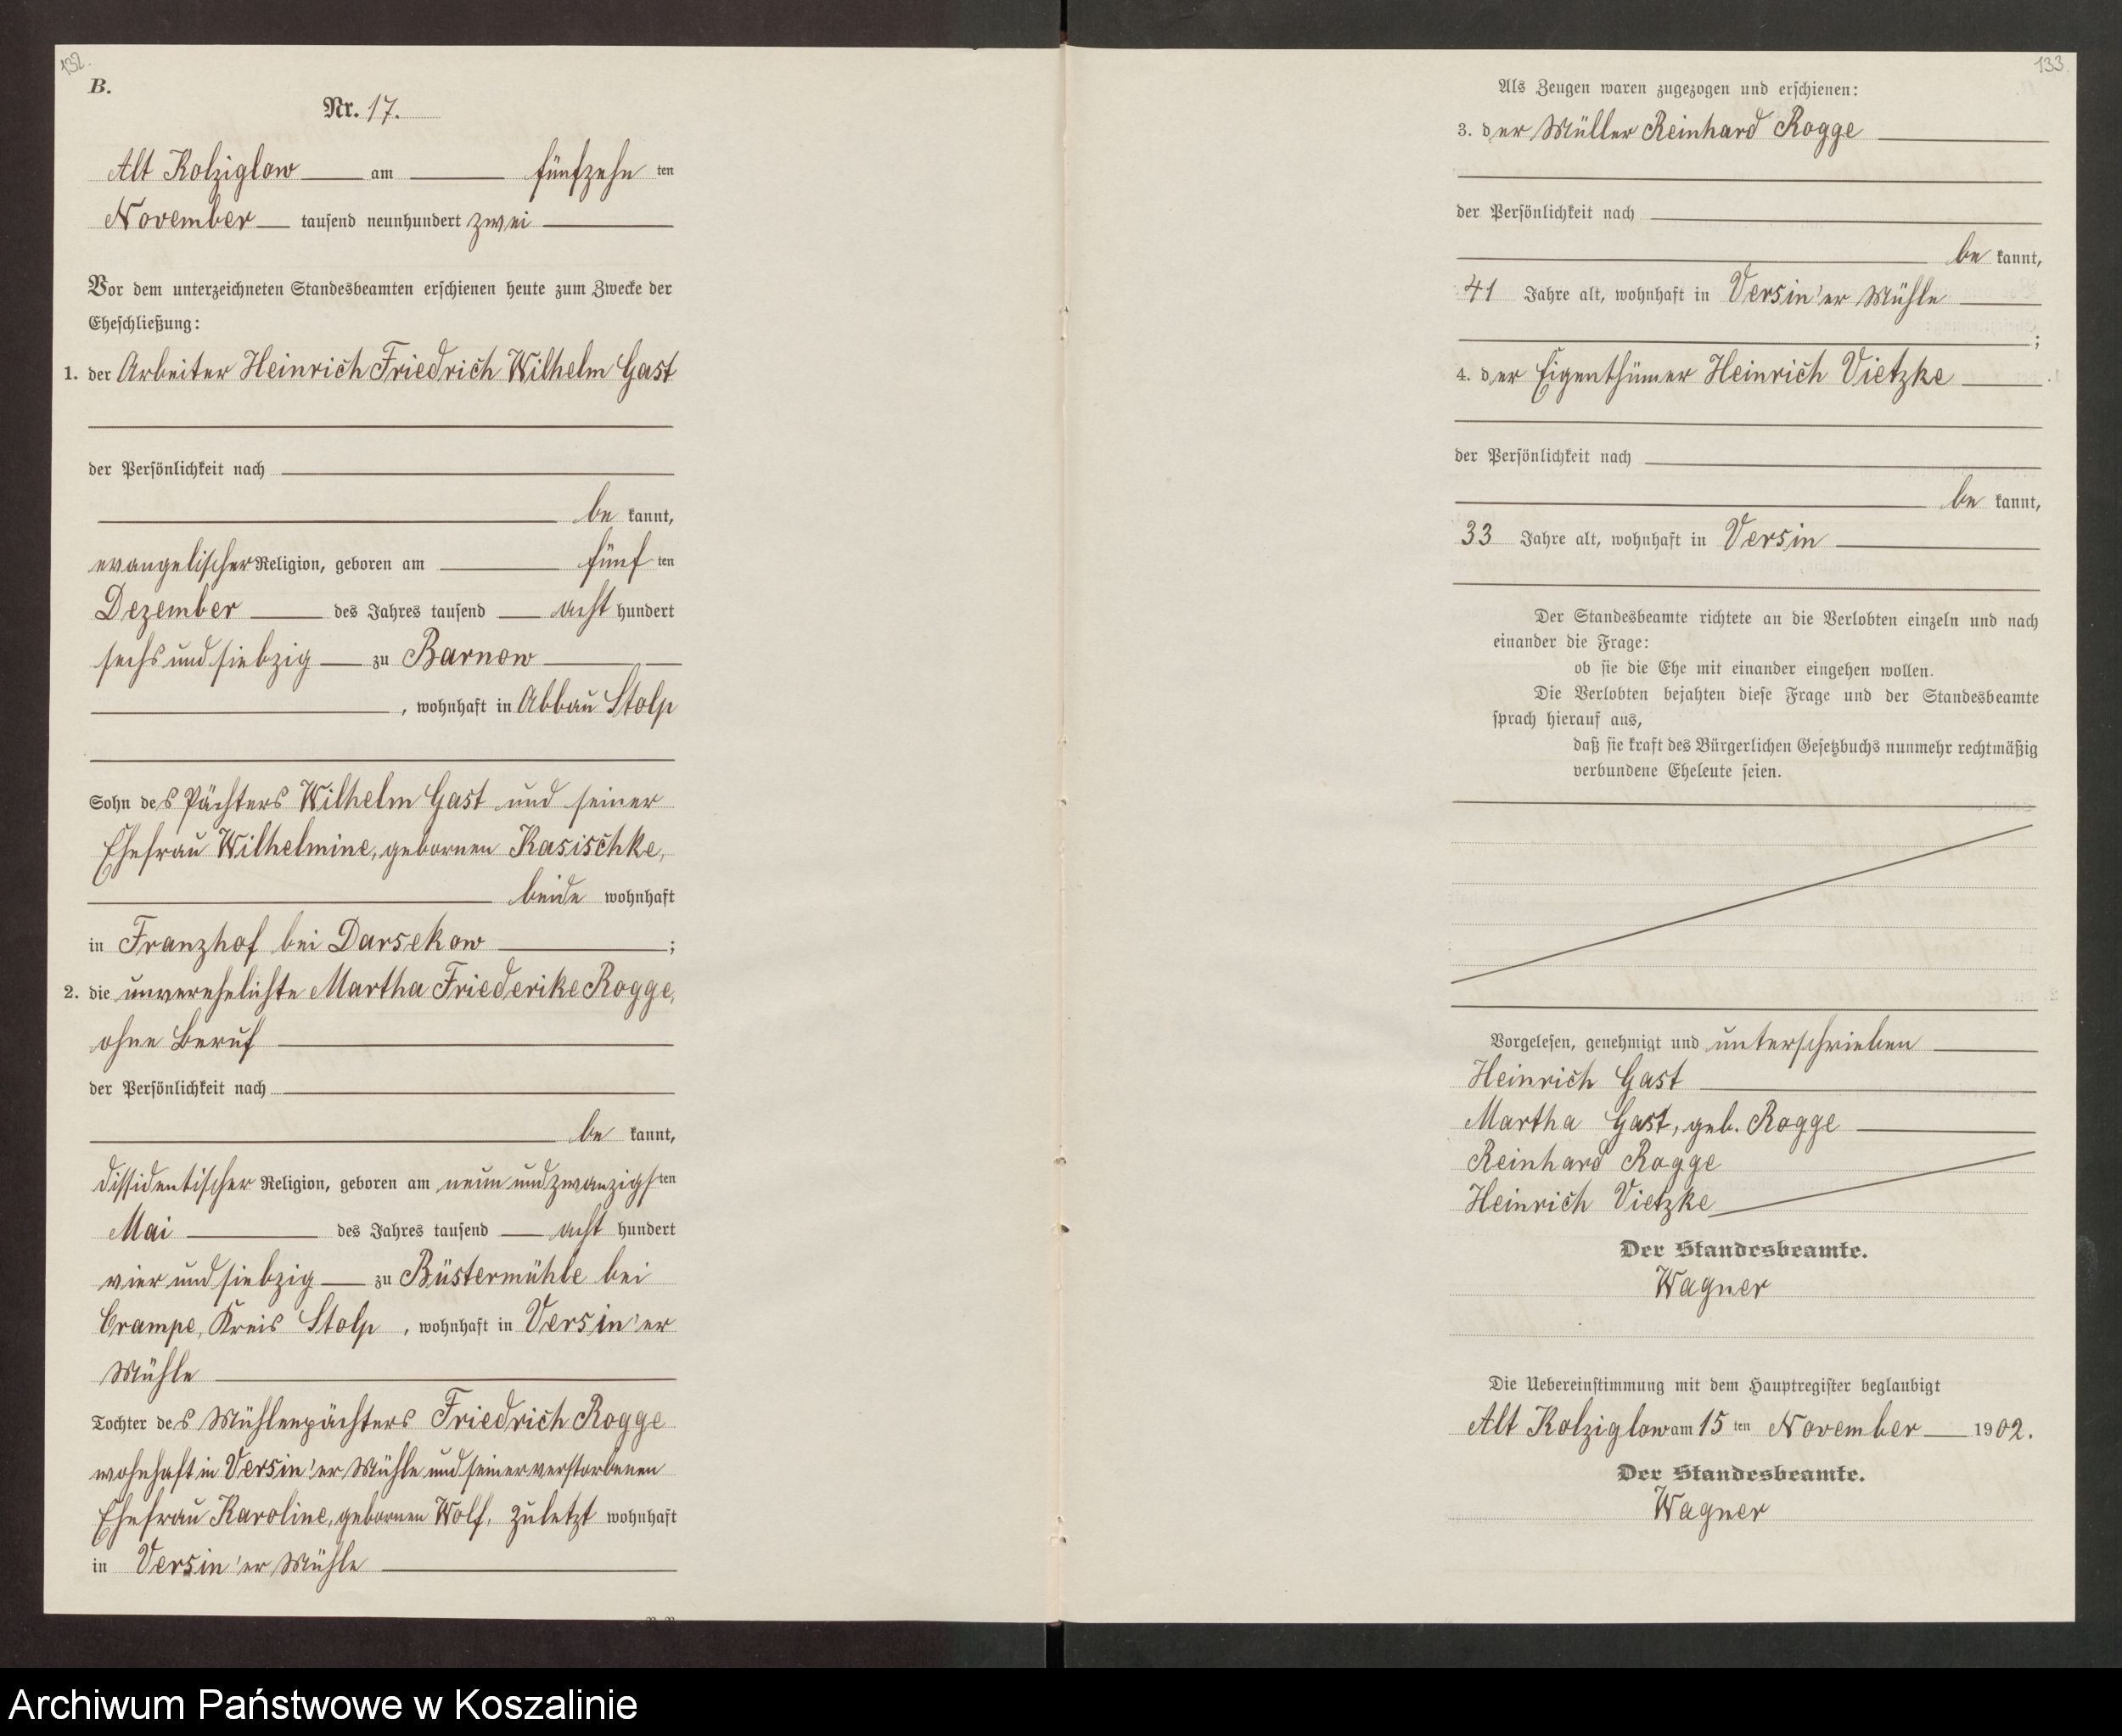 132.
B.
Nr. 17.
Alt Kolziglow am fünfzehn ten
November tausend neunhundert zwei
Vor dem unterzeichneten Standesbeamten erschienen heute zum Zwecke der
Eheschließung:
1. der Arbeiter Heinrich Friedrich Wilhelm Gast
der Persönlichkeit nach
be kannt,
evangelischer Religion, geboren am fünf ten
Dezember des Jahres tausend acht hundert
sechs und siebzig zu Barnow
, wohnhaft in Abbau Stolp
Sohn des Pächters Wilhelm Gast und seiner
Ehefrau Wilhelmine, gebornen Kasischke,
beide wohnhaft
in Franzhof bei Darsekow ;
2. die unverehelichte Martha Friederike Rogge,
ohne Beruf
der Persönlichkeit nach
be kannt,
dissidentischer Religion, geboren am neun und zwanzigsten
Mai des Jahres tausend acht hundert
vier und siebzig zu Büstermühle bei
Crampe, Kreis Stolp , wohnhaft in Versin'er
Mühle
Tochter des Mühlenpächters Friedrich Rogge
wohnhaft in Versin'er Mühle und seiner verstorbenen
Ehefrau Karoline, gebornen Wolf, zuletzt wohnhaft
in Versin'er Mühle
133.
Als Zeugen waren zugezogen und erschienen:
3. der Müller Reinhard Rogge
der Persönlichkeit nach
be kannt,
41 Jahre alt, wohnhaft in Versin'er Mühle
;
4. der Eigenthümer Heinrich Vietzke
der Persönlichkeit nach
be kannt,
33 Jahre alt, wohnhaft in Versin
Der Standesbeamte richtete an die Verlobten einzeln und nach
einander die Frage:
ob sie die Ehe mit einander eingehen wollen.
Die Verlobten bejahten diese Frage und der Standesbeamte
sprach hierauf aus,
daß sie kraft des Bürgerlichen Gesetzbuchs nunmehr rechtmäßig
verbundene Eheleute seien.
Vorgelesen, genehmigt und unterschrieben
Heinrich Gast
Martha Gast, geb. Rogge
Reinhard Rogge
Heinrich Vietzke
Der Standesbeamte.
Wagner
Die Uebereinstimmung mit dem Hauptregister beglaubigt
Alt Kolziglow am 15 ten November 1902.
Der Standesbeamte.
Wagner
Archiwum Państwowe w Koszalinie